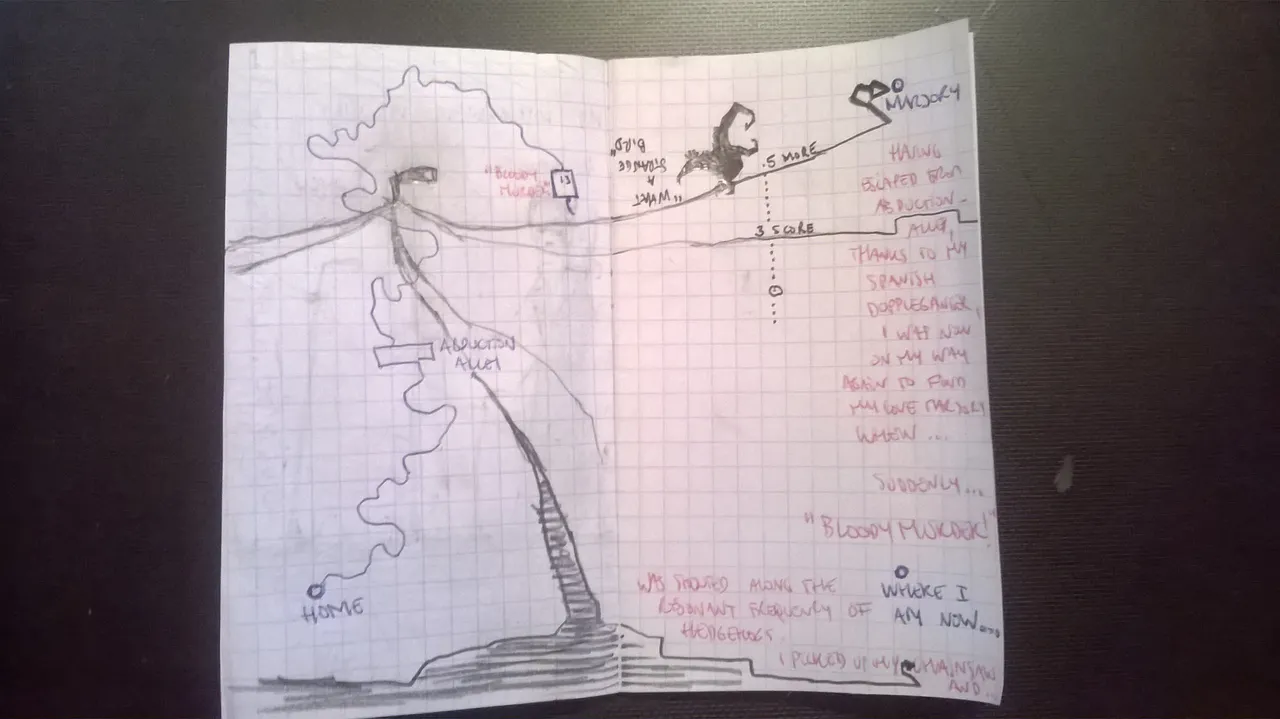 MARJORY
"WHAT
A
STRANGE
BIRD"
.5 MORE
3 SCORE
"BLOODY
MURDER"
13
ABDUCTION
ALLEY
HOME
HAING
ESCAPED FROM
ABDUCTION
ALLEY,
THANKS TO MY
SPANISH
DOPPLEGANGER,
I WAS NOW
ON MY WAY
AGAIN TO FIND
MY LOVE MARJORY
WHEN ...
SUDDENLY...
"BLOODY MURDER!"
WAS SHOUTED ALONG THE
RESONANT FREQUENCY OF
HEDGEHOGS.
WHERE I
AM NOW....
I PICKED UP MY CHAINSAW
AND...